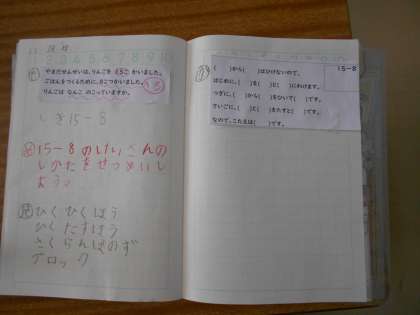 やまだせんせいは、りんごを 15こ かいました。
ごはんをつくるために、8こつかいました。
りんごは なんこ のこっていますか。
しき15-8
15-8 のけいさんの
しかたをせつめいし
よう。
ひくひくほう
ひくたすほう
さくらんぼのず
ブロック
(　)から(　)はひけないので、
はじめに、(　)を(　)と(　)にわけます。
つぎに、(　)から(　)をひいて(　)です。
さいごに、(　)と(　)をたすと(　)です。
なので、こたえは(　)です。
15-8